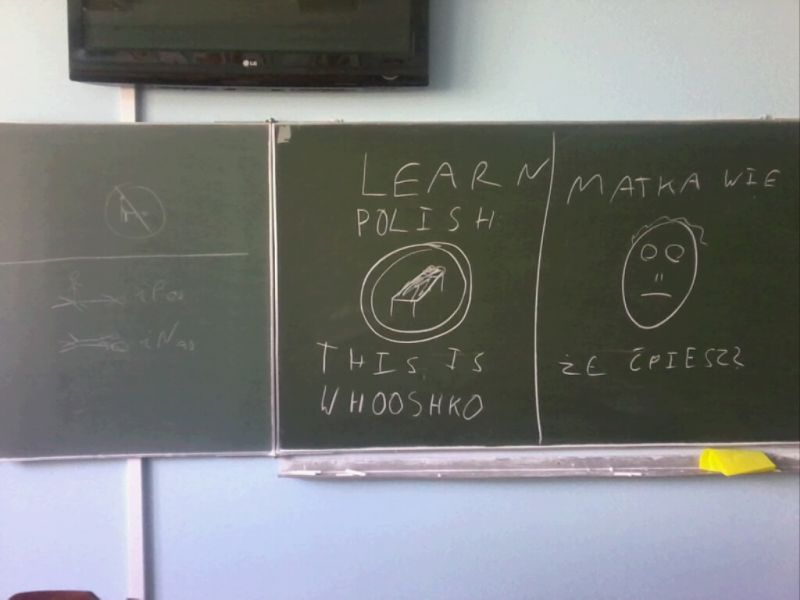 LG
LEARN
POLISH
THIS IS
WHOOSHKO
MATKA WIE
ŻE ĆPIESZ